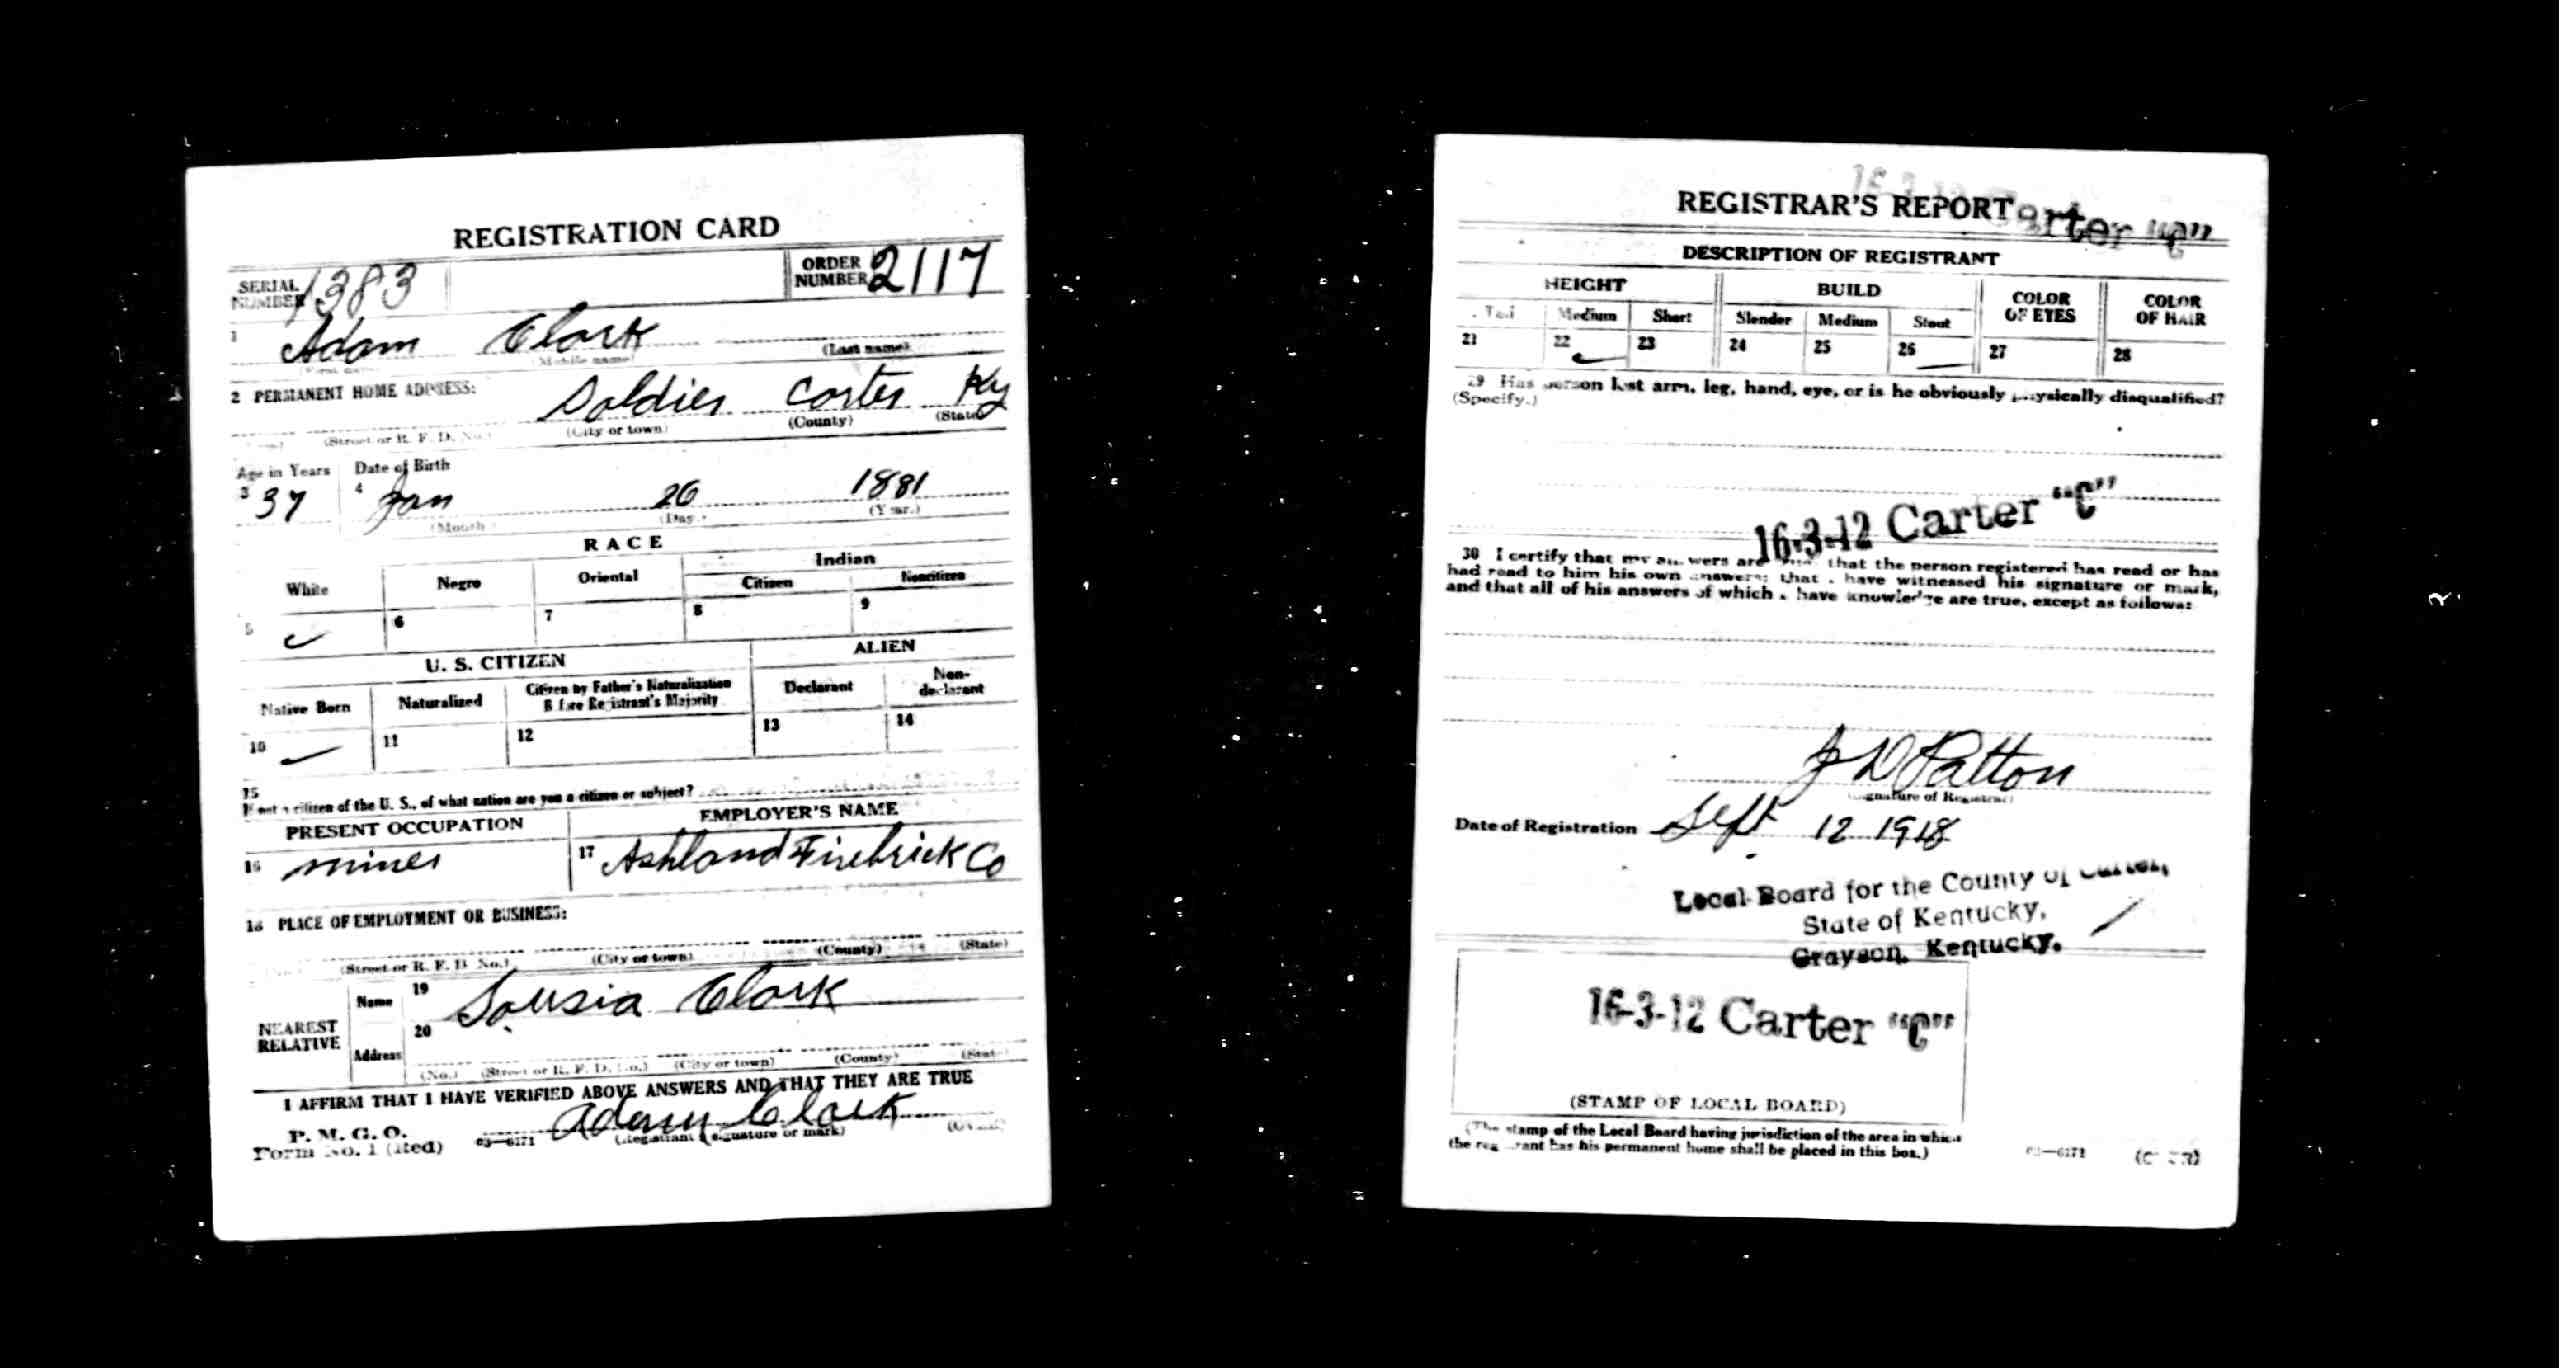 REGISTRATION CARD
SERIAL NUMBER 1383
ORDER NUMBER 2117
1 Adam Clark
(Middle name) (Last name)
2 PERMANENT HOME ADDRESS: Soldier Carter Ky
(Street or R. F. D. No.) (City or town) (County) (State)
Age in Years Date of Birth
3 37 4 Jan 26 1881
(Month) (Day) (Year)
RACE
White Negro Oriental Indian
Citizen Noncitizen
5 6 7 8 9
U. S. CITIZEN ALIEN
Native Born Naturalized Citizen by Father's Naturalization Before Registrant's Majority Declarant Non-declarant
10 11 12 13 14
15
If not a citizen of the U. S., of what nation are you a citizen or subject?
PRESENT OCCUPATION EMPLOYER'S NAME
16 miner 17 Ashland Firebrick Co
18 PLACE OF EMPLOYMENT OR BUSINESS:
(Street or R. F. D. No.) (City or town) (County) (State)
NEAREST RELATIVE
Name 19 Clark
Address 20
(No.) (Street or R. F. D. No.) (City or town) (County) (State)
I AFFIRM THAT I HAVE VERIFIED ABOVE ANSWERS AND THAT THEY ARE TRUE
P. M. G. O.
Form No. 1 (Red) 03—6171 Adam Clark
(Registrant's signature or mark) (OVER)
REGISTRAR'S REPORT
DESCRIPTION OF REGISTRANT
HEIGHT BUILD COLOR OF EYES COLOR OF HAIR
Tall Medium Short Slender Medium Stout
21 22 23 24 25 26 27 28
29 Has person lost arm, leg, hand, eye, or is he obviously physically disqualified?
(Specify.)
16-3-12 Carter "C"
30 I certify that my answers are true, that the person registered has read or has
had read to him his own answers; that I have witnessed his signature or mark,
and that all of his answers of which I have knowledge are true, except as follows:
J D Patton
(Signature of Registrar)
Date of Registration Sept 12 1918
Local Board for the County of Carter,
State of Kentucky,
Grayson, Kentucky.
16-3-12 Carter "C"
(STAMP OF LOCAL BOARD)
(The stamp of the Local Board having jurisdiction of the area in which
the registrant has his permanent home shall be placed in this box.)
03—6171 (OVER)